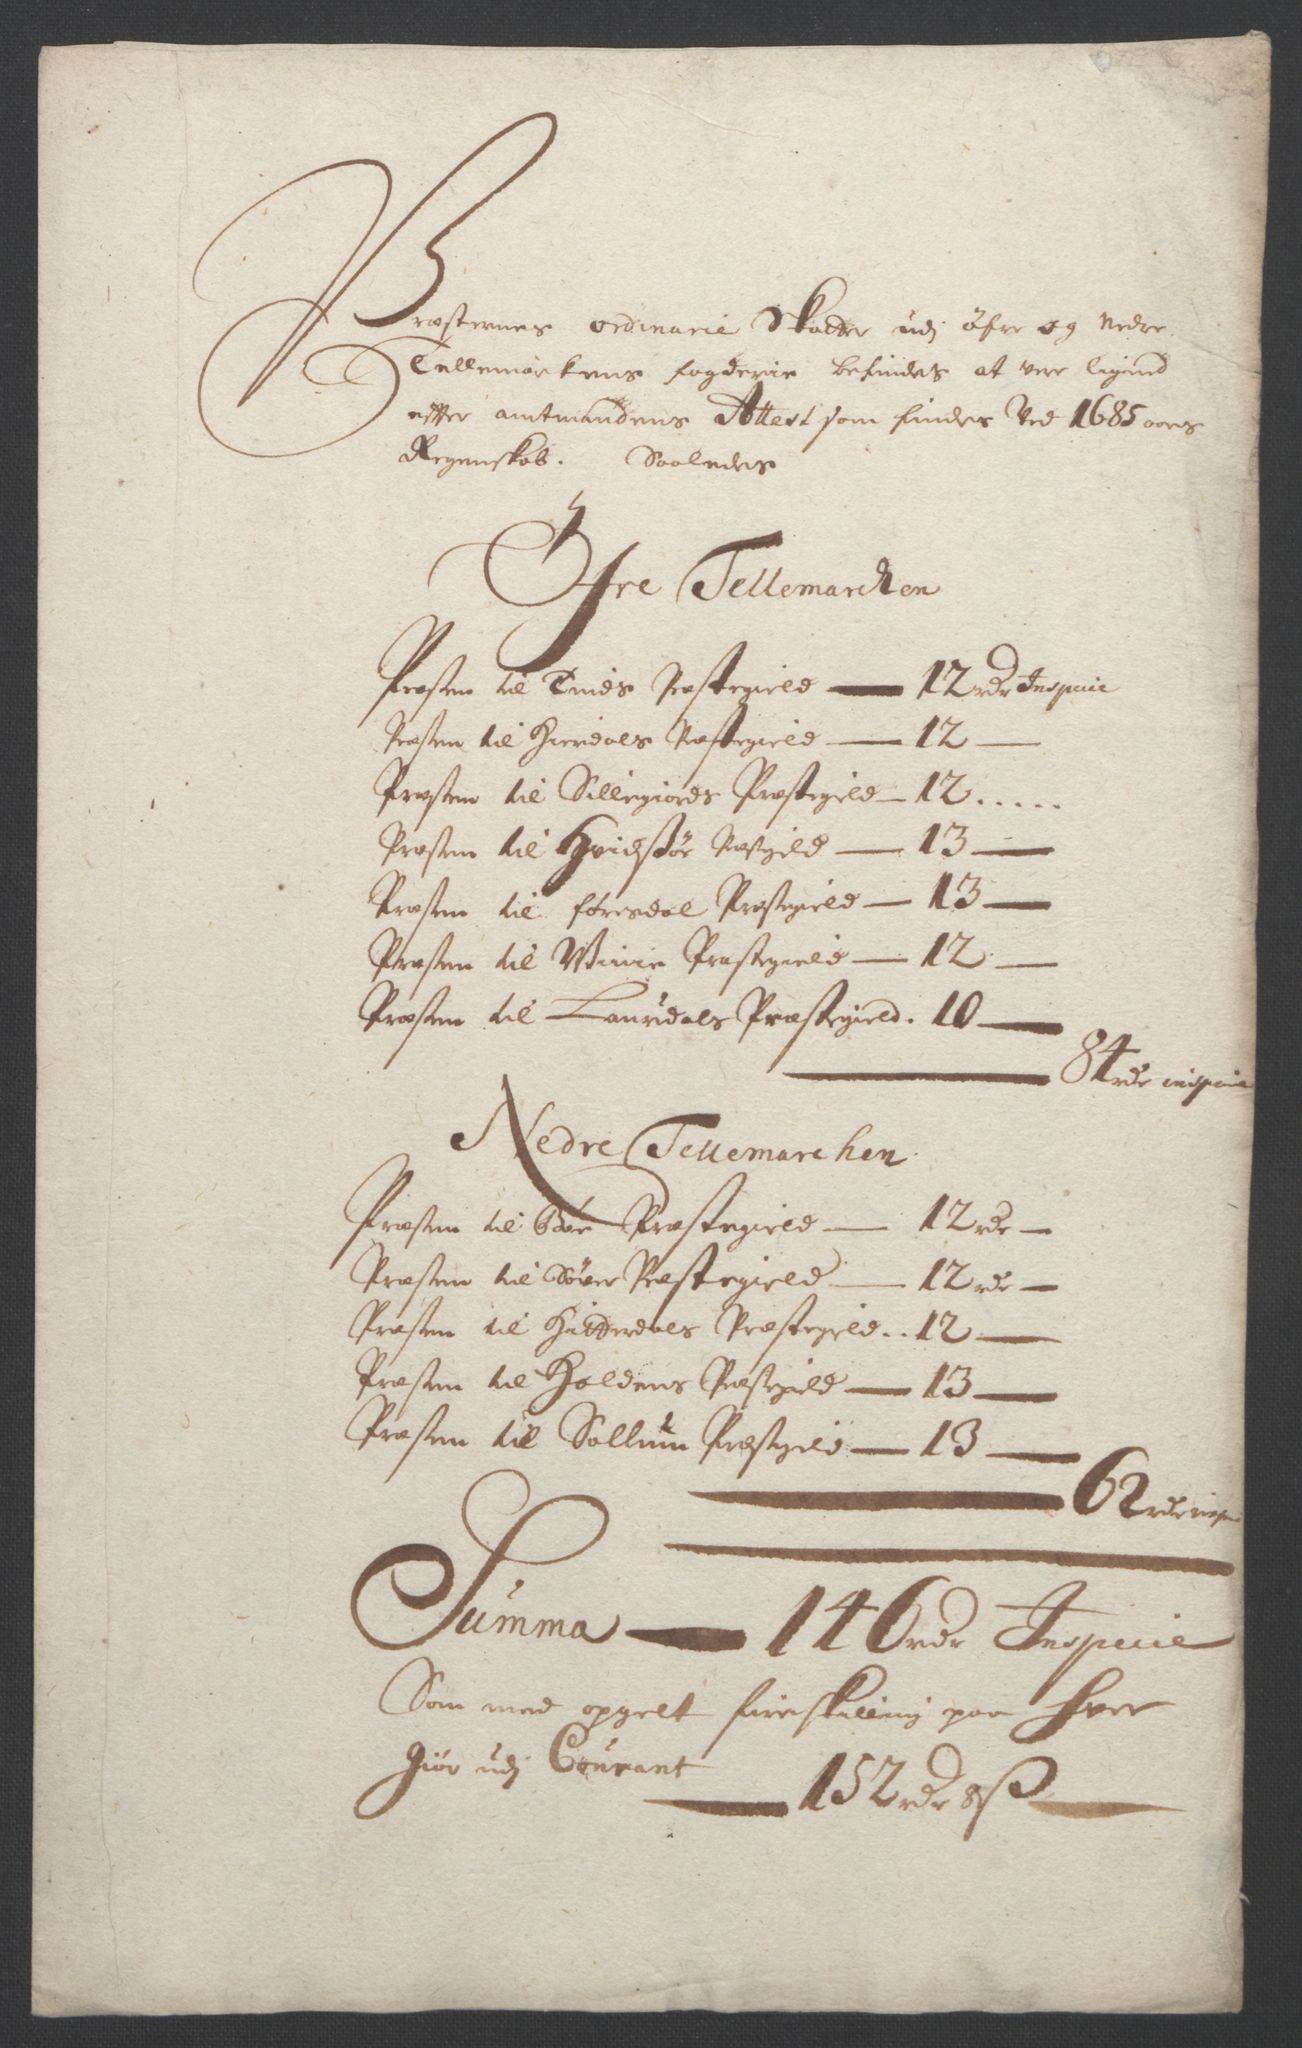 Præsternes ordinarie Skatter udj Øfre og Nedre
Tellemarkens fogderie befindes at vere ligned
effter amtmandens Attest som findes Ved 1685 aars
Regenskab. Saaledes
Øfre Tellemarcken
Præsten til Tinds Præstegield — 12 rdr Inspecie
Præsten til Hierdals Præstegield — 12 —
Præsten til Sillegiords Præstegield — 12 .....
Præsten til Hvidsøe Præstgield — 13 —
Præsten til foresdal Præstegield — 13 —
Præsten til Winie Præstegield — 12 —
Præsten til Laurdals Præstegield . 10 —
— 84 rdr inspecie
Nedre Tellemarchen
Præsten til Bøe Præstegield — 12 rdr —
Præsten til Søver Præstegield — 12 rdr —
Præsten til Hitterdals Præstegield .. 12 —
Præsten til Holdens Præstegield — 13 —
Præsten til Sollum Præstgield — 13 —
— 62 rdr insp
Summa — 146 rdr Inspecie
Som med opgelt fire skilling paa hver
giør udj Courant
— 152 rdr 8 ß —